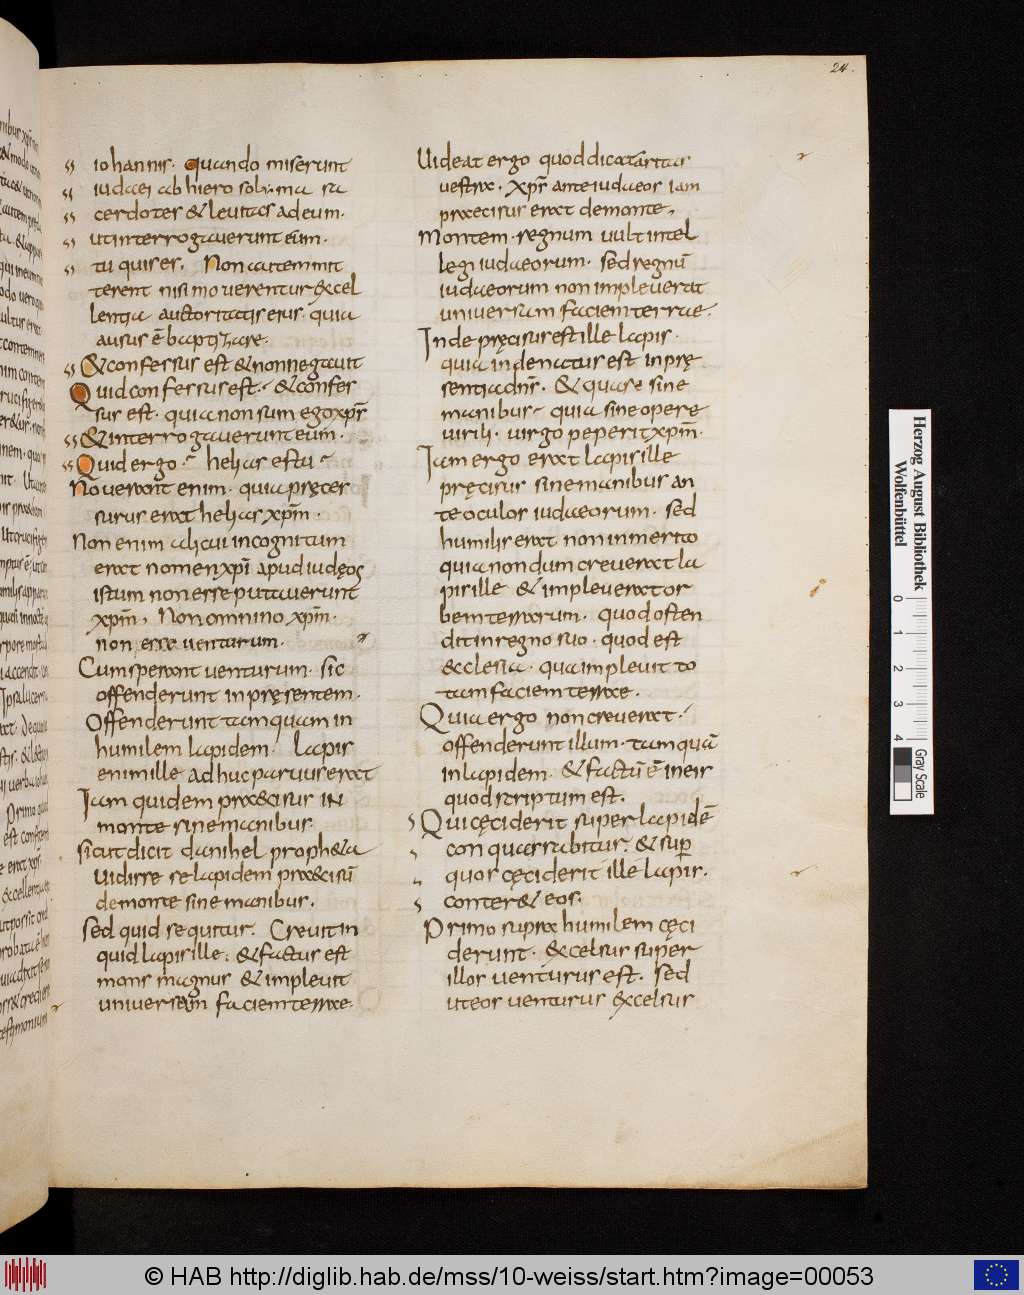 24.
iohannis. quando miserunt
iudaei ab hierosolimis sa
cerdotes & leuitas ad eum.
ut interrogauerunt eum.
tu quis es. Non autem mit
terent nisi mouerentur excel
lentia auctoritatis eius. quia
ausus ē baptizare.
& confessus est & non negauit
Quid confessus est. & confes
sus est. quia non sum ego xp̄s
& interrogauerunt eum.
Quid ergo. helias es tu
Nouerant enim. quia pręces
surus erat helias xp̄m.
Non enim alicui incognitum
erat nomen xp̄i apud iudęos
istum non esse putauerunt
xp̄m, Non omnino xp̄m.
non esse uenturum.
Cum sperant uenturum. sic
offenderunt in pręsentem.
Offenderunt tamquam in
humilem lapidem. Lapis
enim ille adhuc paruus erat
Iam quidem praecisus in
monte sine manibus.
sicut dicit danihel proph&a
Uidisse se lapidem praecisū
de monte sine manibus.
Sed quid sequitur. Creuit in
quid lapis ille. & factus est
mons magnus & impleuit
uniuersam faciem terrae.
Uideat ergo quod dico caritas
uestra. xp̄s ante iudaeos iam
praecisus erat de monte,
Montem. regnum uult intel
legi iudaeorum. sed regnū
iudaeorum non impleuerat
uniuersam faciem terrae.
Inde pręcisus est ille lapis.
quia inde natus est in prę
sentia dn̄s. & quare sine
manibus quia sine opere
uirili. uirgo peperit xp̄m.
Iam ergo erat lapis ille
pręcisus sine manibus an
te oculos iudaeorum. sed
humilis erat non inmerito
quia nondum creuerat la
pis ille & impleuerat or
bem terrarum. quod osten
dit in regno suo. quod est
&cclesia. qua impleuit to
tam faciem terrae.
Quia ergo non creuerat.
offenderunt illum. tamquā
in lapidem. & factū ē in eis
quod scriptum est.
Qui cęciderit super lapidē
conquassabitur. & sup̄
quos cęciderit ille lapis.
conter& eos.
Primo supra humilem cęci
derunt. &celsus super
illos uenturus est. sed
ut eos uenturus &celsus
Herzog August Bibliothek
Wolfenbüttel
0 1 2 3 4
Gray Scale
© HAB http://diglib.hab.de/mss/10-weiss/start.htm?image=00053